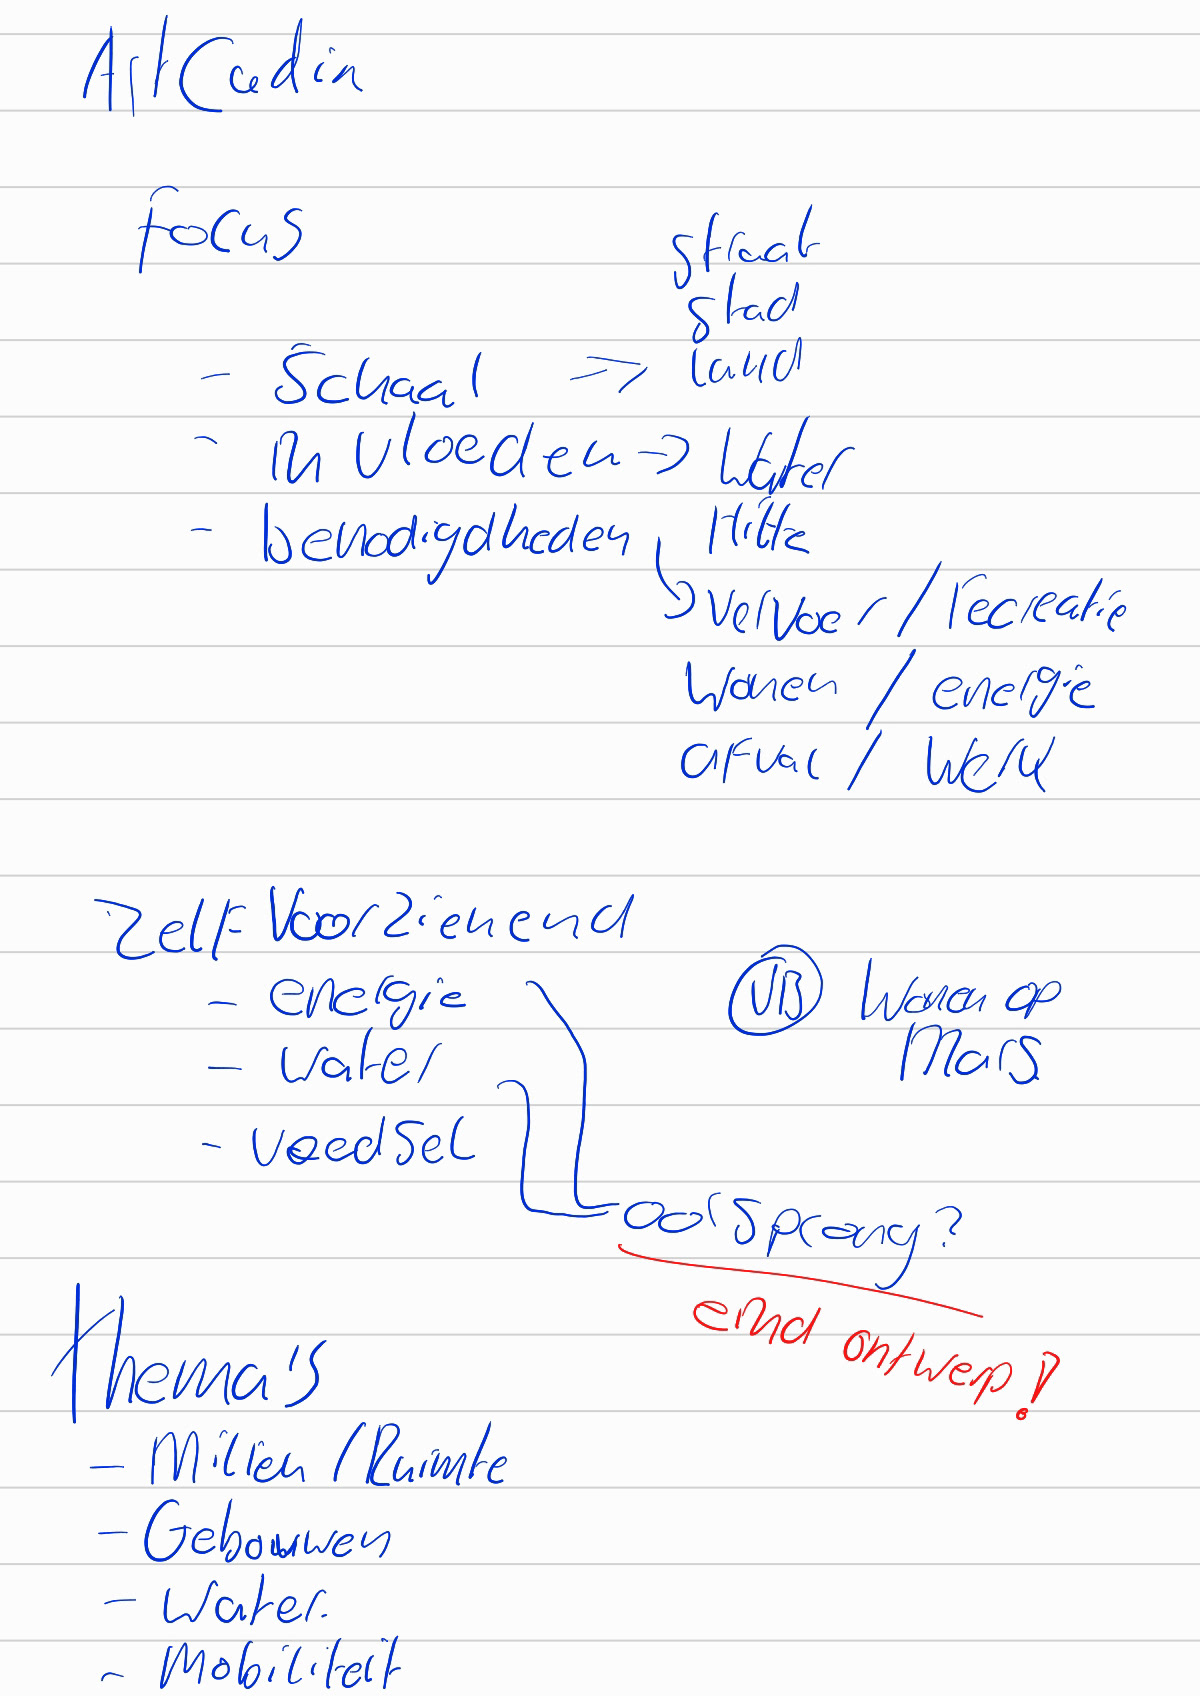 ArtCadin
focus
straat
stad
- Schaal => land
- invloeden -> Water
- benodigdheden Hitte
-> vervoer / recreatie
Wonen / energie
afval / Werk
Zelf Voorzienend
- energie
VB Wonen op
- water
Mars
- voedsel
oorsprong?
eind ontwerp!
thema's
- Milieu / Ruimte
- Gebouwen
- Water.
- Mobiliteit